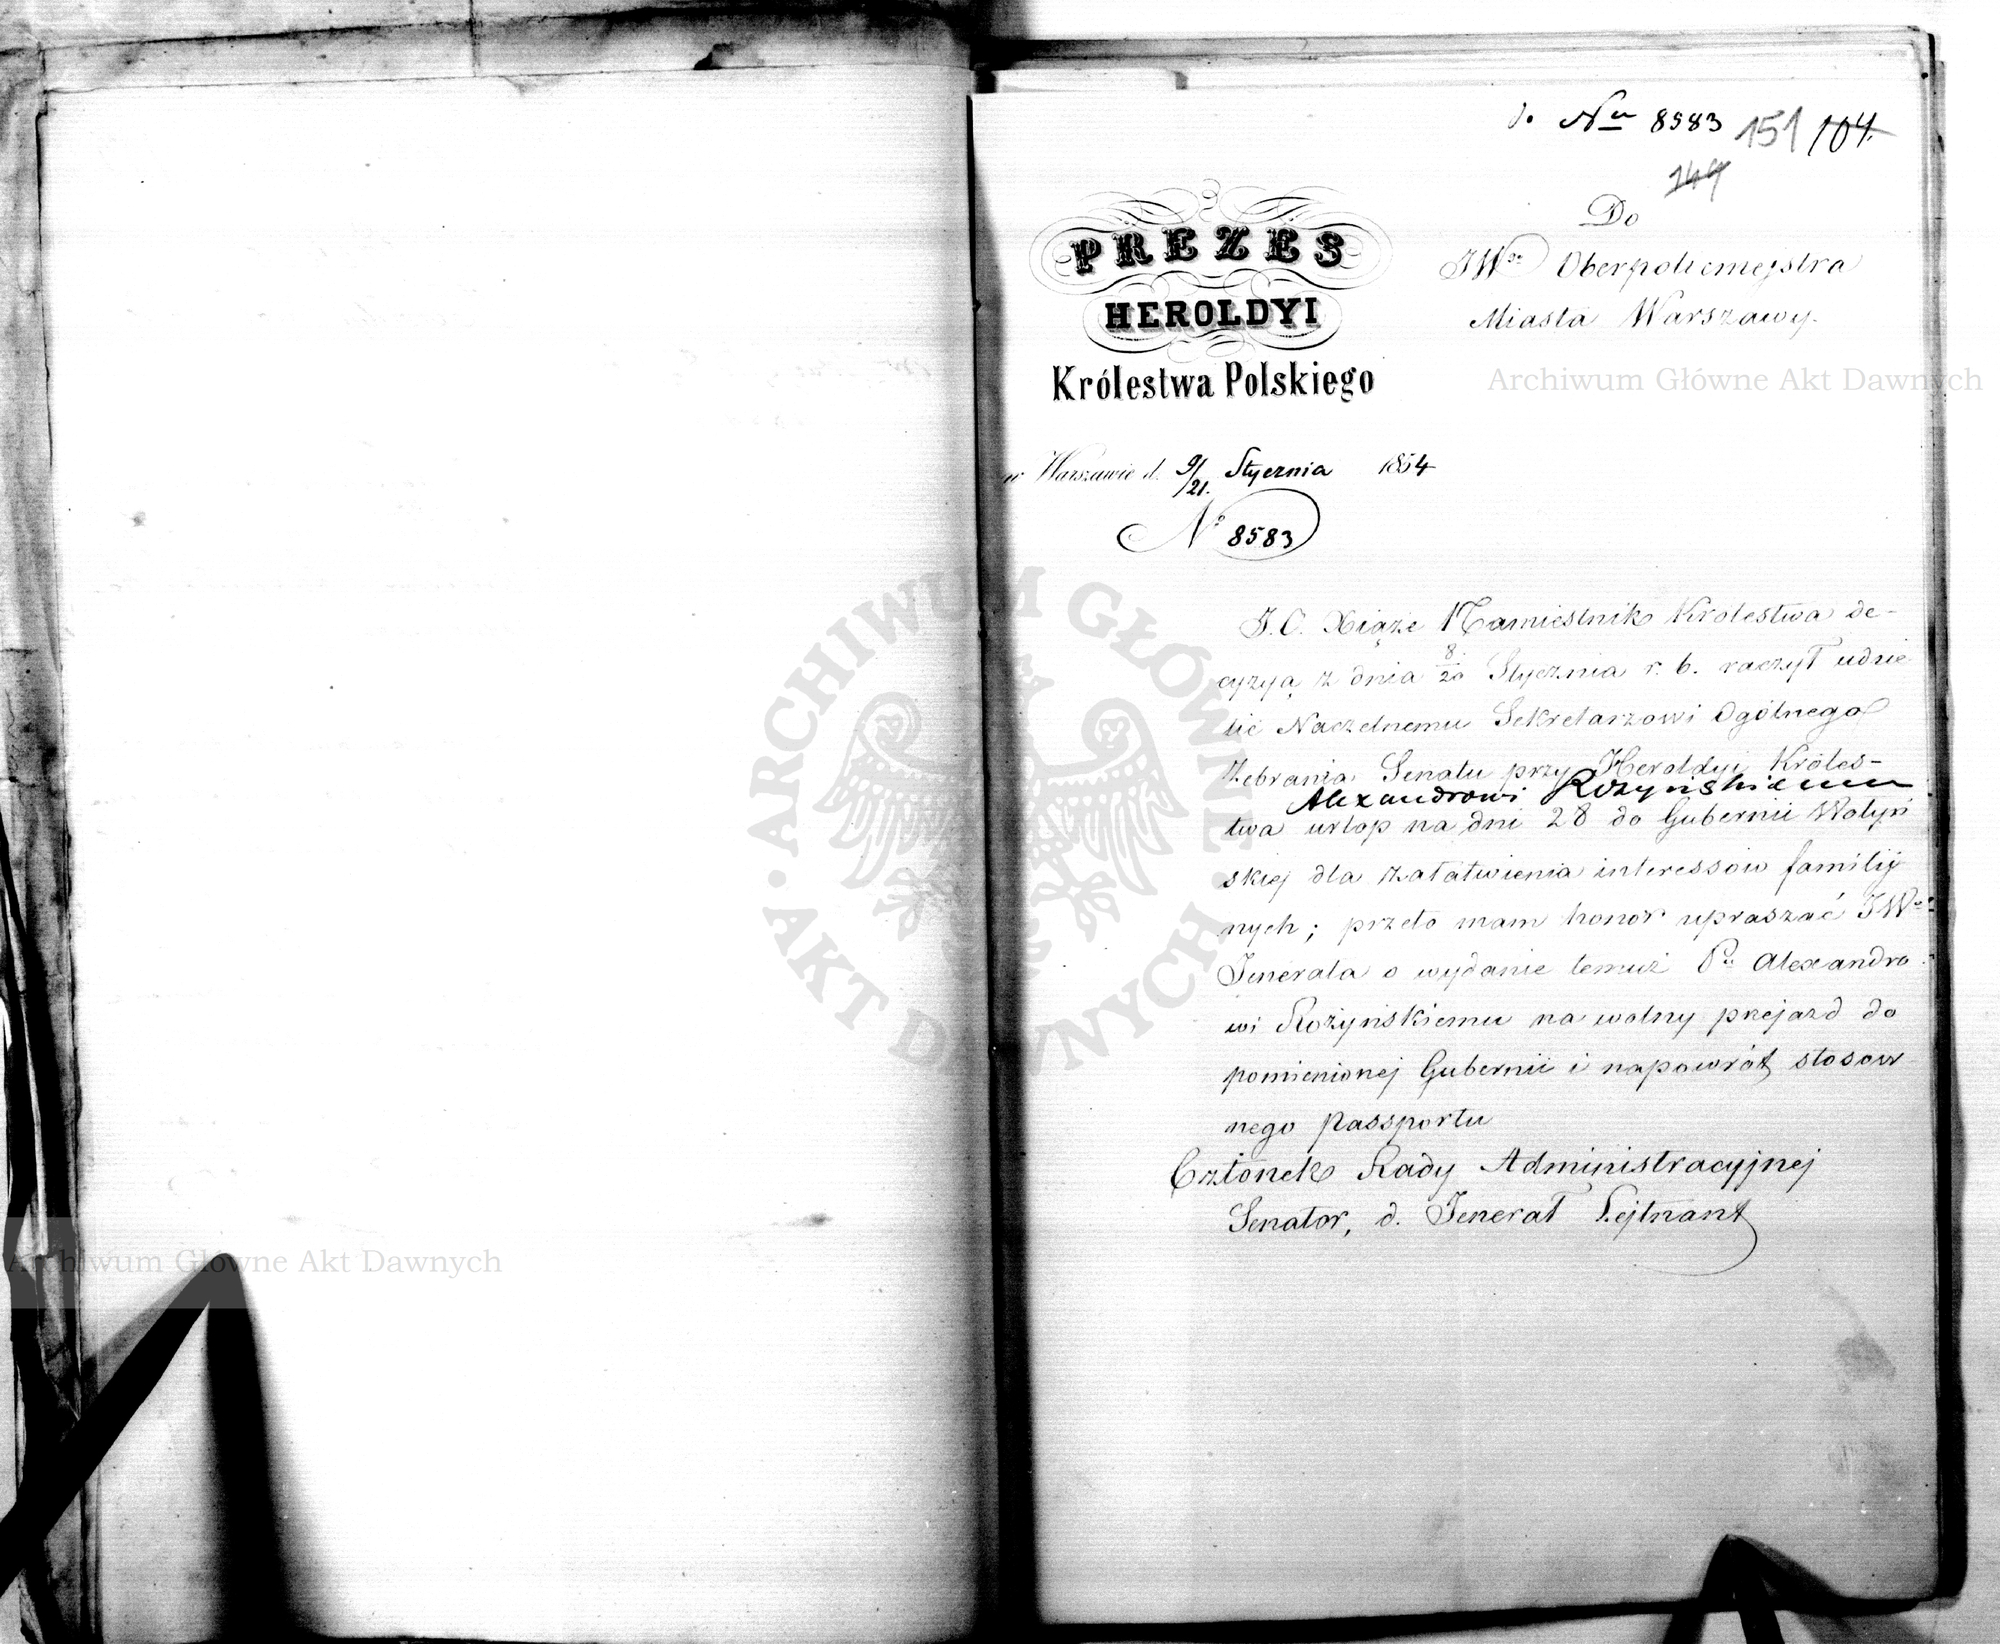 do Nru 8583 151 104.
149
PREZES
HEROLDYI
Królestwa Polskiego
Do
JWgo Oberpolicmejstra
Miasta Warszawy.
w Warszawie d. 9/21. Stycznia 1854
No 8583
J. O. Xiąże Namiestnik Królestwa de-
cyzyą z dnia 8/20 Stycznia r. b. raczył udzie
lić Naczelnemu Sekretarzowi Ogólnego
Zebrania Senatu przy Heroldyi Króles-
Alexandrowi Rożyńskiemu
twa urlop na dni 28 do Gubernii Wołyń
skiej dla załatwienia interessów familij
nych; przeto mam honor upraszać JWgo
Jenerała o wydanie temuż Pu Alexandro
wi Rożyńskiemu na wolny przejazd do
pomienionej Gubernii i napowrót stosow
nego passportu
Członek Rady Administracyjnej
Senator, d. Jenerał Lejtnant
Archiwum Główne Akt Dawnych
ARCHIWUM GŁÓWNE AKT DAWNYCH
Archiwum Główne Akt Dawnych